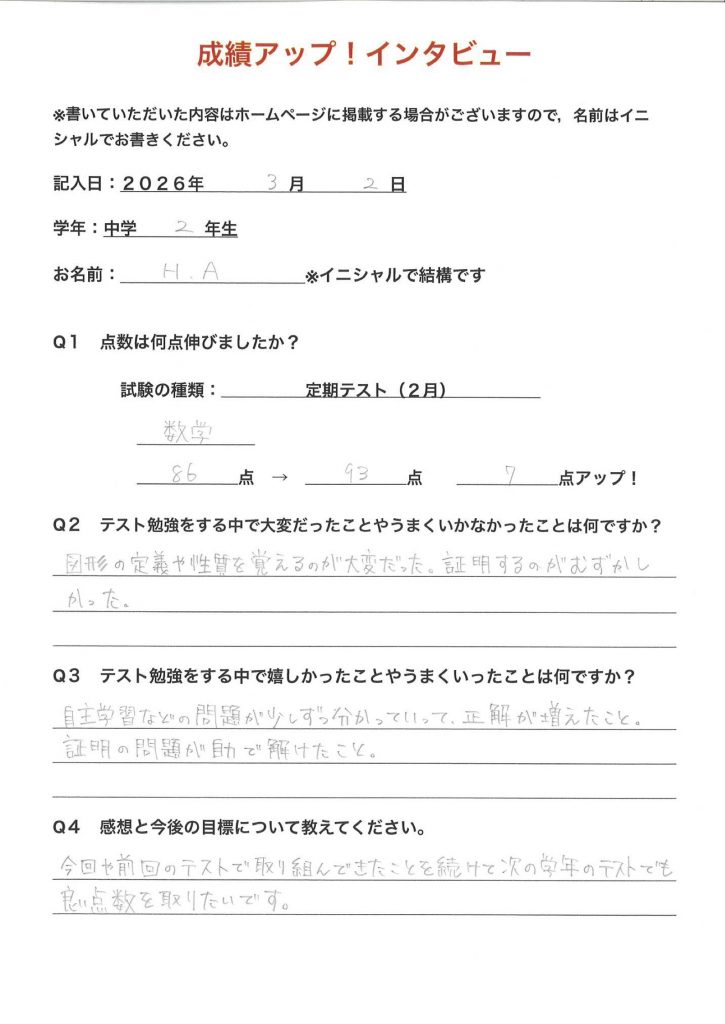 成績アップ！インタビュー
※書いていただいた内容はホームページに掲載する場合がございますので，名前はイニ
シャルでお書きください。
記入日：２０２６年　3　月　2　日
学年：中学　2　年生
お名前：　H.A　※イニシャルで結構です
Q１　点数は何点伸びましたか？
試験の種類：　定期テスト（２月）
数学
86 点　→　93 点　7 点アップ！
Q２　テスト勉強をする中で大変だったことやうまくいかなかったことは何ですか？
図形の定義や性質を覚えるのが大変だった。証明するのがむずかし
かった。
Q３　テスト勉強をする中で嬉しかったことやうまくいったことは何ですか？
自主学習などの問題が少しずつ分かっていって、正解が増えたこと。
証明の問題が自力で解けたこと。
Q４　感想と今後の目標について教えてください。
今回や前回のテストで取り組んできたことを続けて次の学年のテストでも
良い点数を取りたいです。